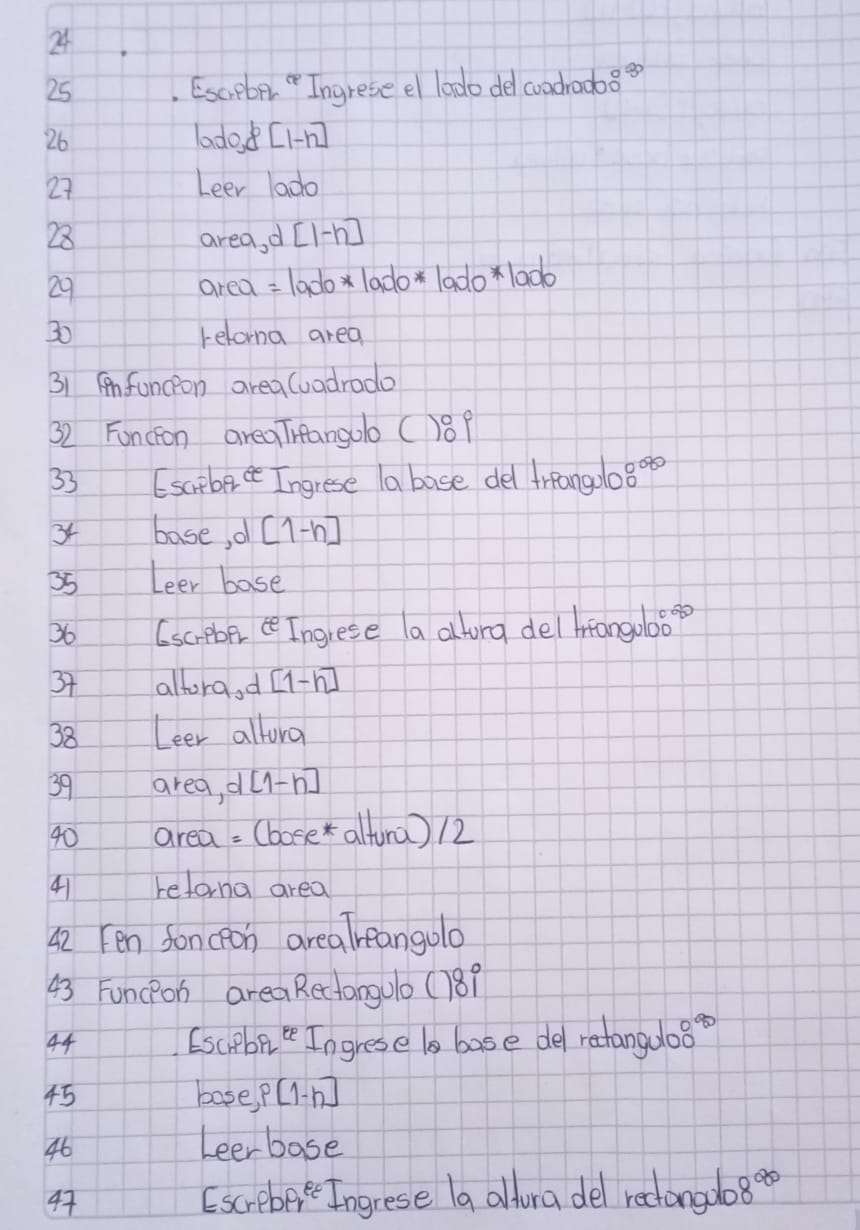 24 .
25 . Escribir "Ingrese el lado del cuadrado:"
26 lado,d [1-n]
27 Leer lado
28 area,d [1-n]
29 area = lado * lado * lado * lado
30 retorna area
31 Fin funcion areaCuadrado
32 Funcion areaTriangulo ():i
33 Escribir "Ingrese la base del triangulo:"
34 base,d [1-n]
35 Leer base
36 Escribir "Ingrese la altura del triangulo:"
37 altura,d [1-n]
38 Leer altura
39 area,d [1-n]
40 area = (base * altura) / 2
41 retorna area
42 Fin funcion areaTriangulo
43 Funcion areaRectangulo ():i
44 . Escribir "Ingrese la base del retangulo:"
45 base,i [1-n]
46 Leer base
47 Escribir "Ingrese la altura del rectangulo:"